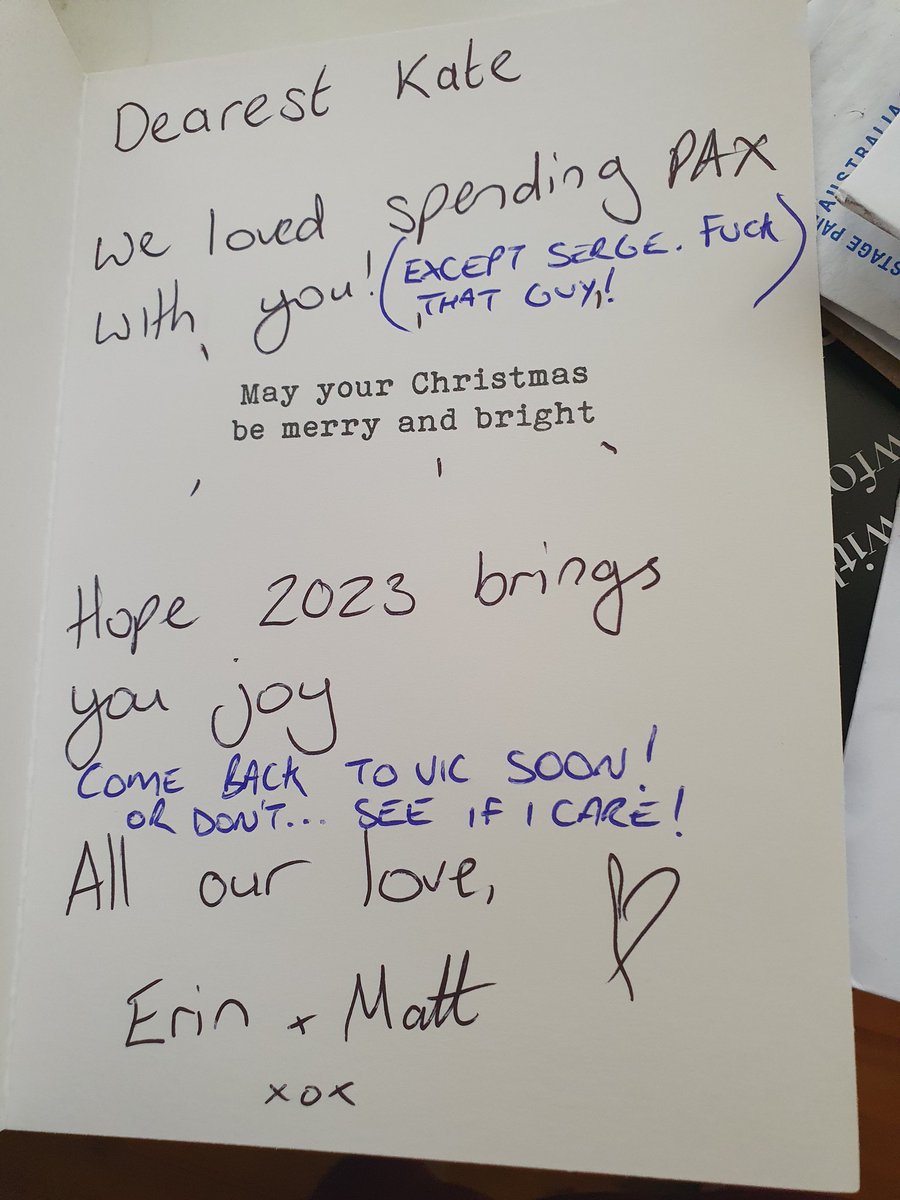 Dearest Kate
We loved spending PAX
with you! (EXCEPT SERGE. FUCK
THAT GUY!)
May your Christmas
be merry and bright
Hope 2023 brings
you joy
COME BACK TO VIC SOON!
OR DON'T... SEE IF I CARE!
All our love,
Erin + Matt
xox
AUSTRALIA
STAGE PAI